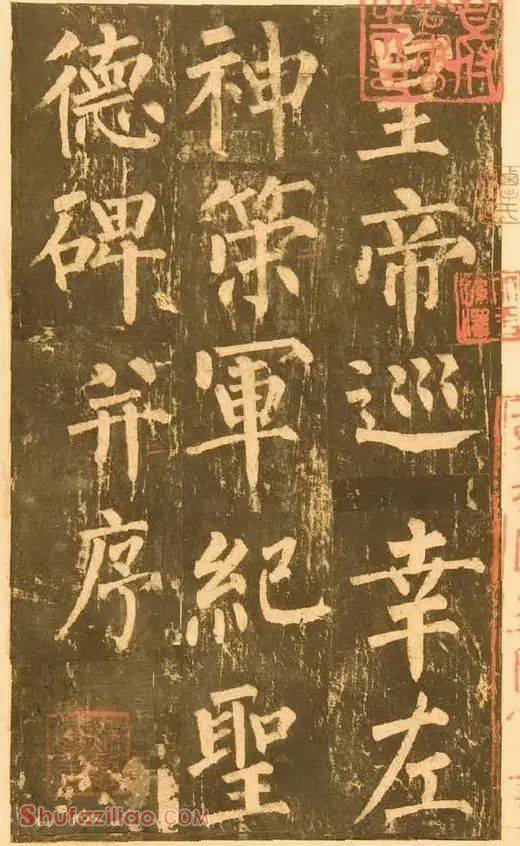 皇帝巡幸左
神策軍紀聖
德碑并序
Shufaziliao.com